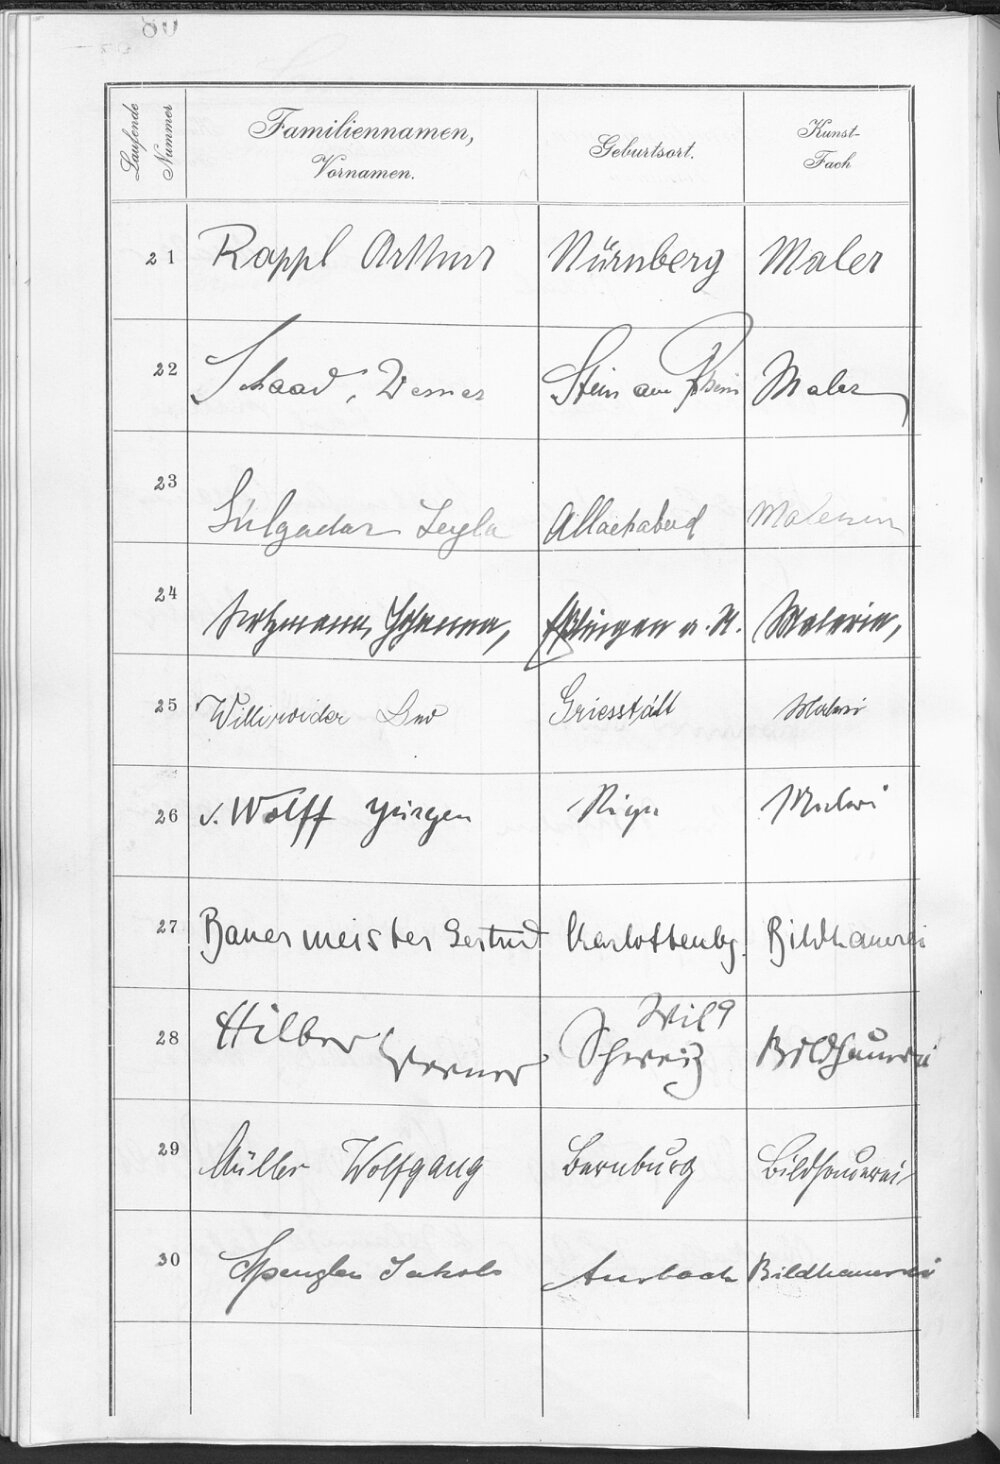 Laufende Nummer
Familiennamen,
Vornamen.
Geburtsort.
Kunst-
Fach
21 Rappl Arthur Nürnberg Maler
22 Schaad, Werner Stein am Rhein Maler
23 Sülgadar Leyla Allachabad Malerin
24 Johanna, Eßlingen a. N. Malerin,
25 Griesstätt Malerei
26 v. Wolff Jürgen Riga Malerei
27 Bauermeister Gertrud Charlottenbg. Bildhauerei
28 Hilber Werner Wil Schweiz Bildhauerei
29 Müller Wolfgang Bernburg Bildhauerei
30 Spengler Jakob Aurbach Bildhauerei